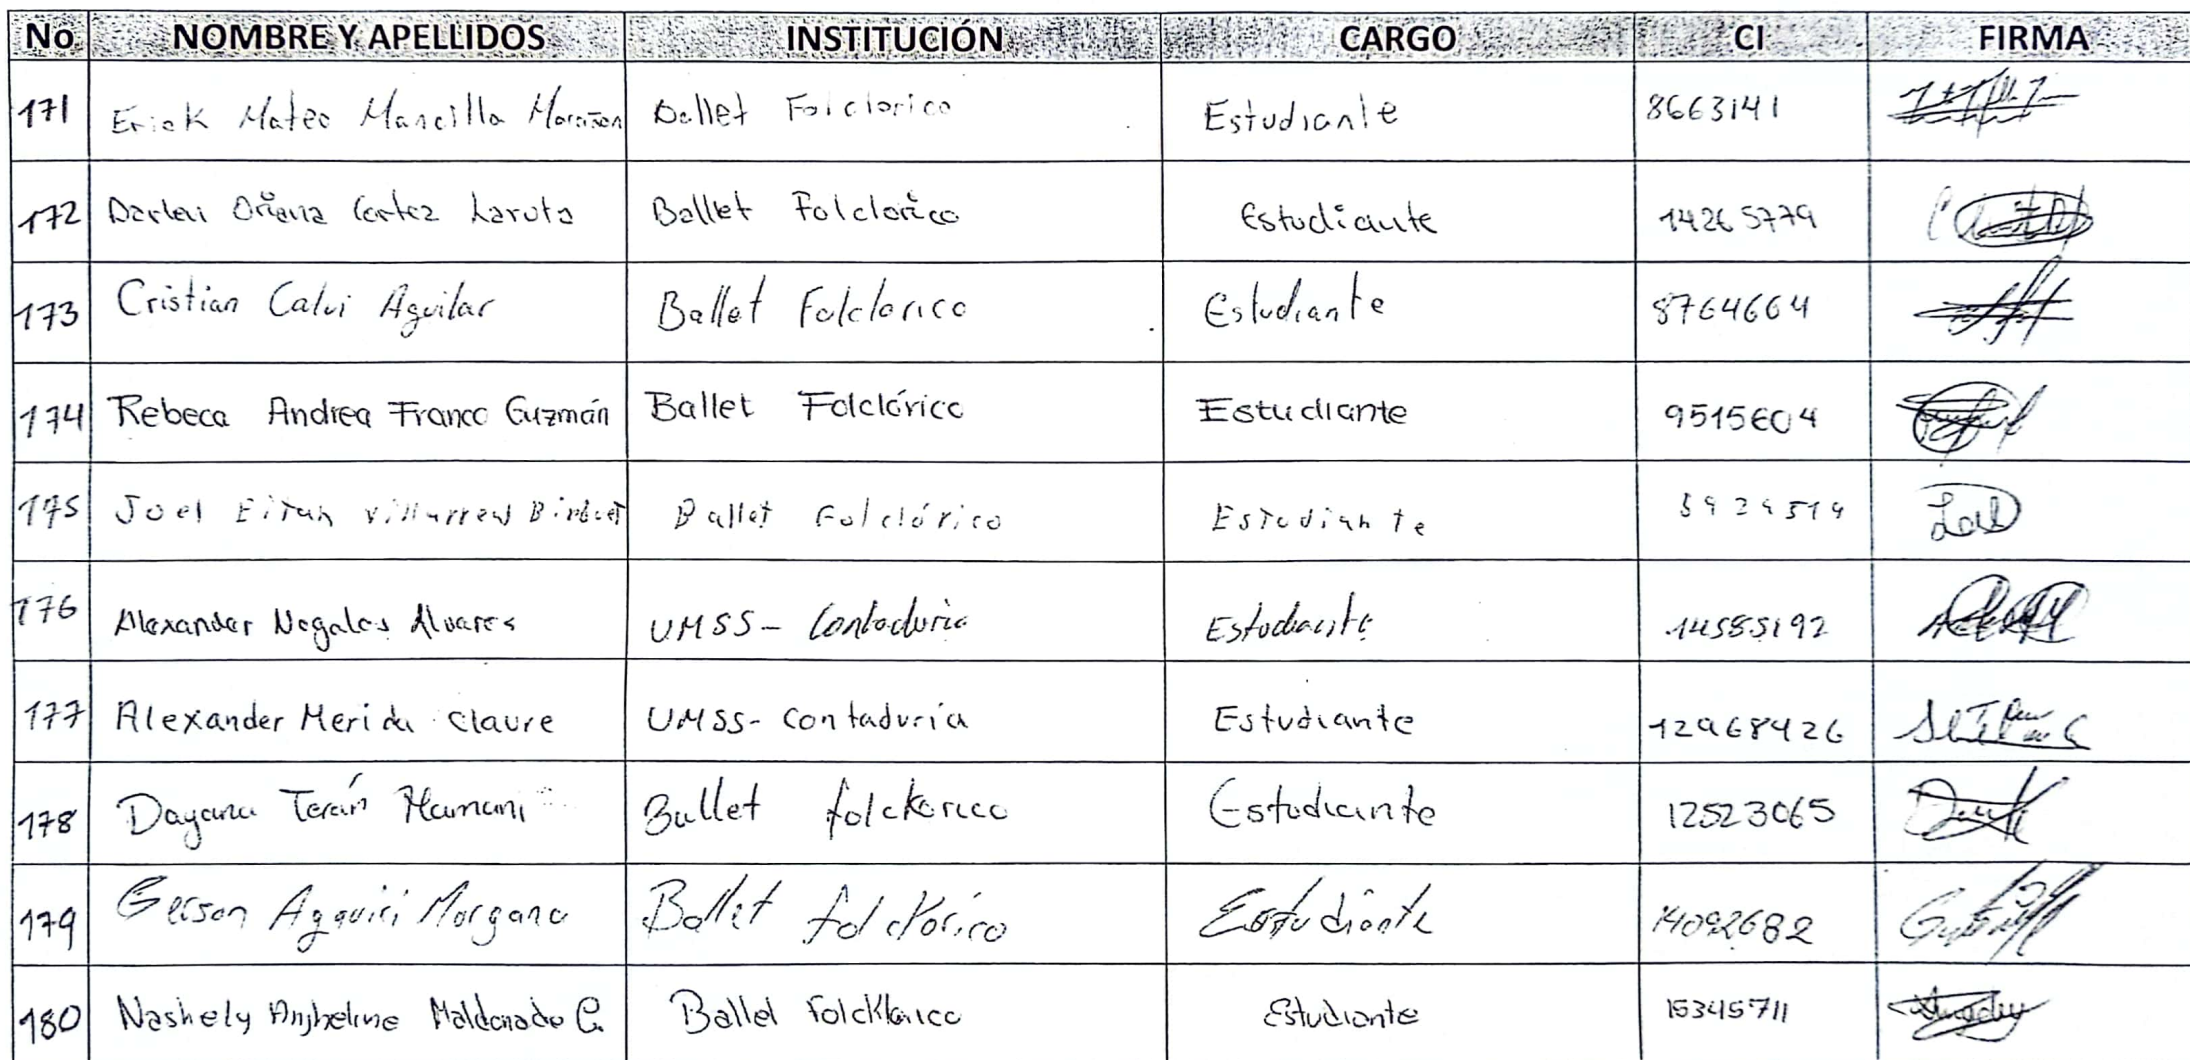 No NOMBRE Y APELLIDOS INSTITUCIÓN CARGO CI FIRMA
171 Erick Mateo Mancilla Ballet Folclorico Estudiante 8663141
172 Oriana Cortez Laruta Ballet Folclorico Estudiante 14265779
173 Cristian Calvi Aguilar Ballet Folclorico Estudiante 8764664
174 Rebeca Andrea Franco Guzmán Ballet Folclórico Estudiante 9515604
175 Joel Eitan Villarreal Ballet Folclórico Estudiante
176 Alexander Nogales Alvares UMSS - Contaduria Estudiante 14585192
177 Alexander Merida Claure UMSS - Contaduría Estudiante 12968426
178 Dayana Terán Mamani Ballet folckorico Estudiante 12523065
179 Gerson Aguirri Morgana Ballet folcKórico Estudiante 14092682
180 Nashely Anjheline Maldonado C. Ballet FolcKlorico Estudiante 15345711